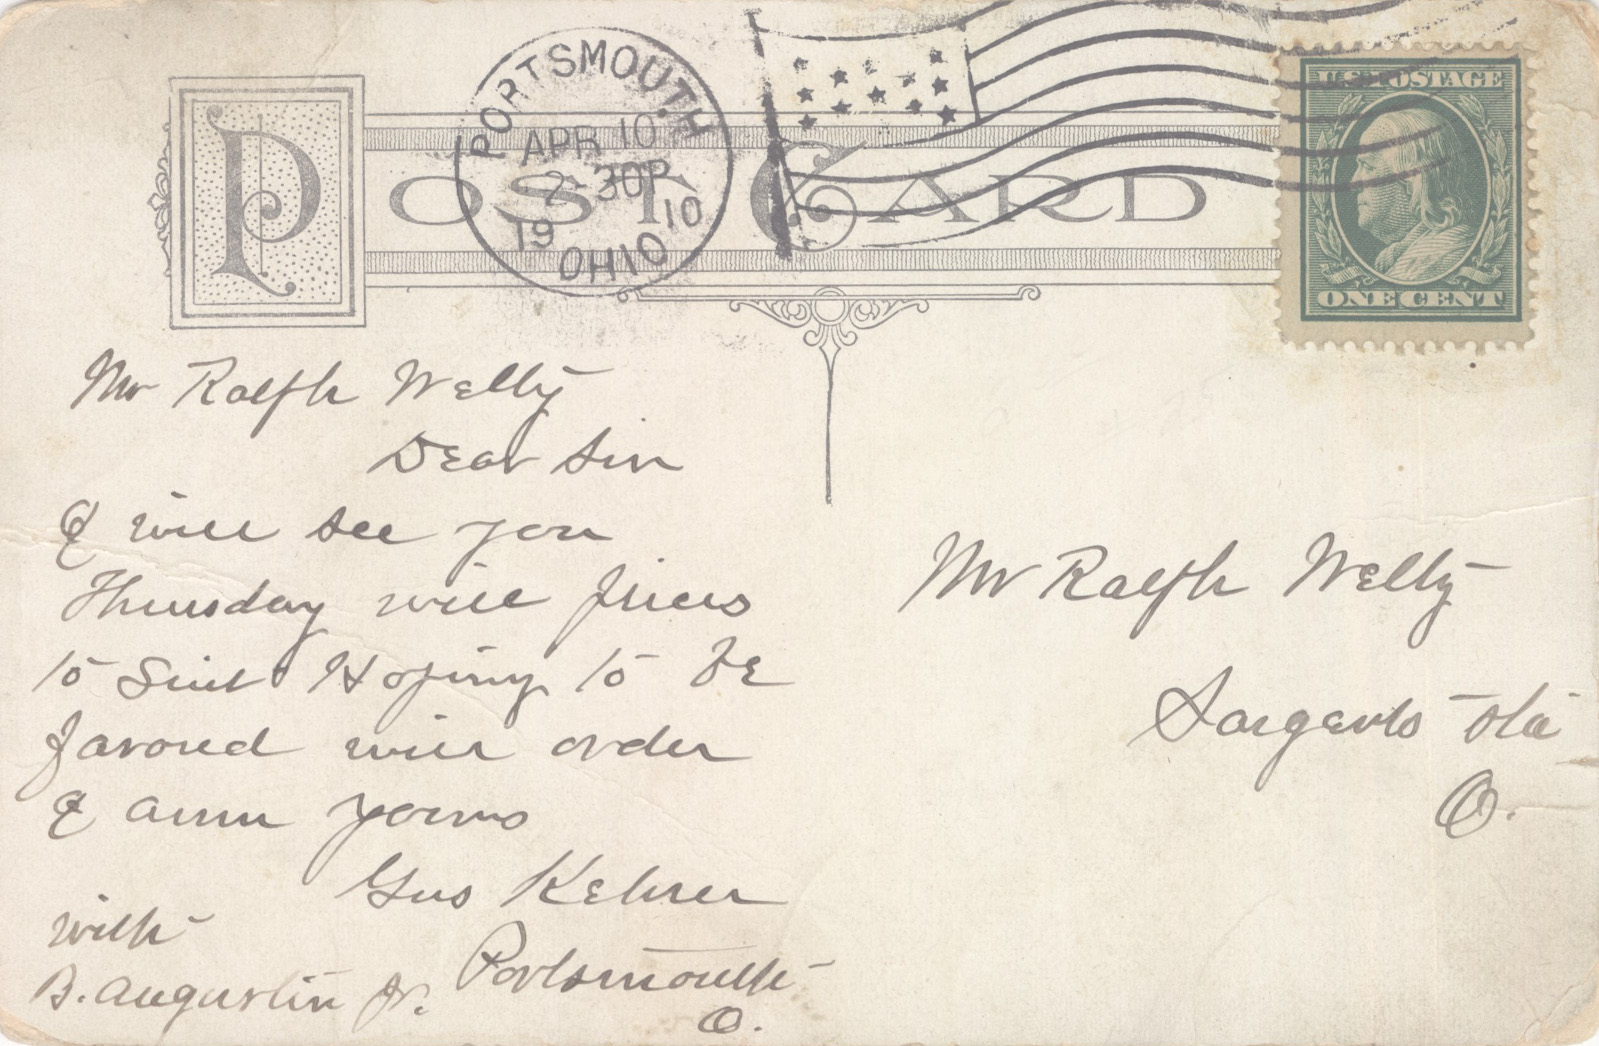 PORTSMOUTH
APR 10
2-30P
19 10
OHIO
POST CARD
U.S. POSTAGE
ONE CENT
Mr Ralph Welty
Dear Sir
I will see you
Thursday will prices
to Suit Hoping to be
favored will order
I am yours
Gus Kehrer
with
B. Augustin Jr. Portsmouth
O.
Mr Ralph Welty
Sargents Sta
O.